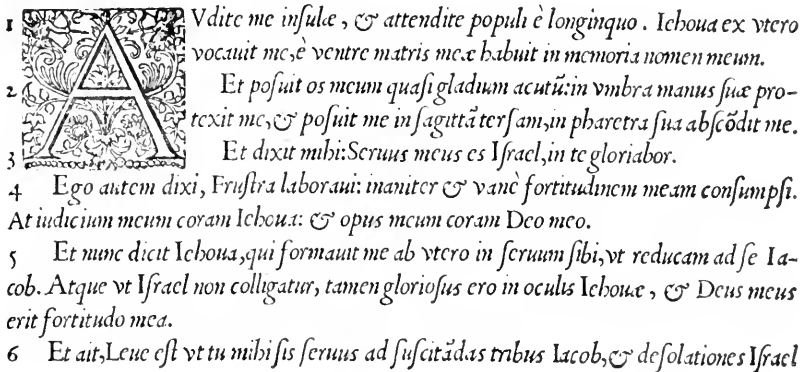 1 AVdite me inſulæ, & attendite populi è longinquo. Iehoua ex vtero
vocauit me, è ventre matris meæ habuit in memoria nomen meum.
2 Et poſuit os meum quaſi gladium acutũ: in vmbra manus ſuæ pro-
texit me, & poſuit me in ſagittã terſam, in pharetra ſua abſcõdit me.
3 Et dixit mihi: Seruus meus es Iſrael, in te gloriabor.
4 Ego autem dixi, Fruſtra laboraui: inaniter & vanè fortitudinem meam conſumpſi.
At iudicium meum coram Iehoua: & opus meum coram Deo meo.
5 Et nunc dicit Iehoua, qui formauit me ab vtero in ſeruum ſibi, vt reducam ad ſe Ia-
cob. Atque vt Iſrael non colligatur, tamen glorioſus ero in oculis Iehouæ, & Deus meus
erit fortitudo mea.
6 Et ait, Leue eſt vt tu mihi ſis ſeruus ad ſuſcitãdas tribus Iacob, & deſolationes Iſrael